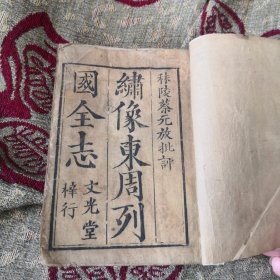 秣陵蔡元放批評
繡像東周列
國全志
文光堂
梓行